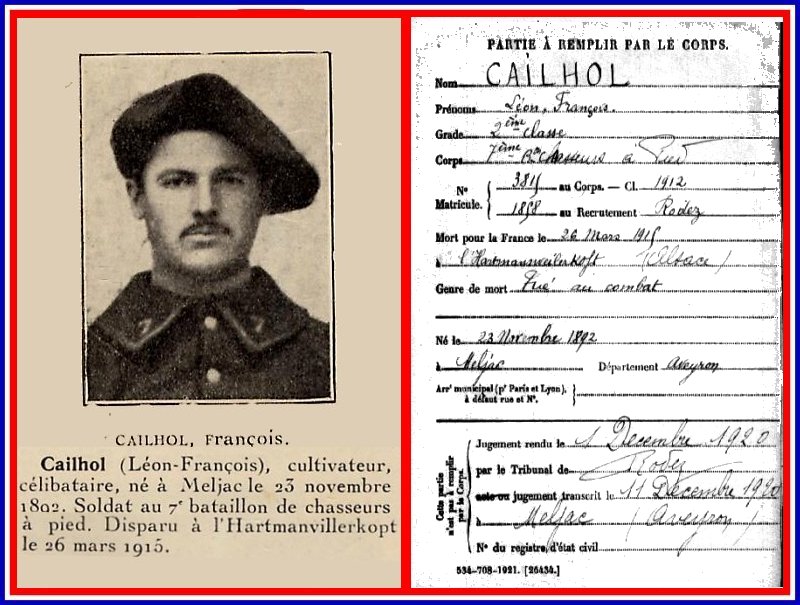 CAILHOL, François.
Cailhol (Léon-François), cultivateur,
célibataire, né à Meljac le 23 novembre
1892. Soldat au 7e bataillon de chasseurs
à pied. Disparu à l'Hartmanvillerkopt
le 26 mars 1915.
PARTIE À REMPLIR PAR LE CORPS.
Nom CAILHOL
Prénoms Léon, François.
Grade 2ème classe
Corps 7ème Bon chasseurs à Pied
No Matricule. 3815 au Corps. — Cl. 1912
1858 au Recrutement Rodez
Mort pour la France le 26 Mars 1915
à l'Hartmansweilerkoft (Alsace)
Genre de mort Tué au combat
Né le 23 Novembre 1892
à Meljac Département Aveyron
Arrt municipal (pr Paris et Lyon),
à défaut rue et No.
Cette partie
n'est pas à remplir
par le Corps.
Jugement rendu le 1 Décembre 1920
par le Tribunal de Rodez
acte ou jugement transcrit le 11 Décembre 1920
à Meljac (Aveyron)
No du registre d'état civil
534-708-1921. [26434.]